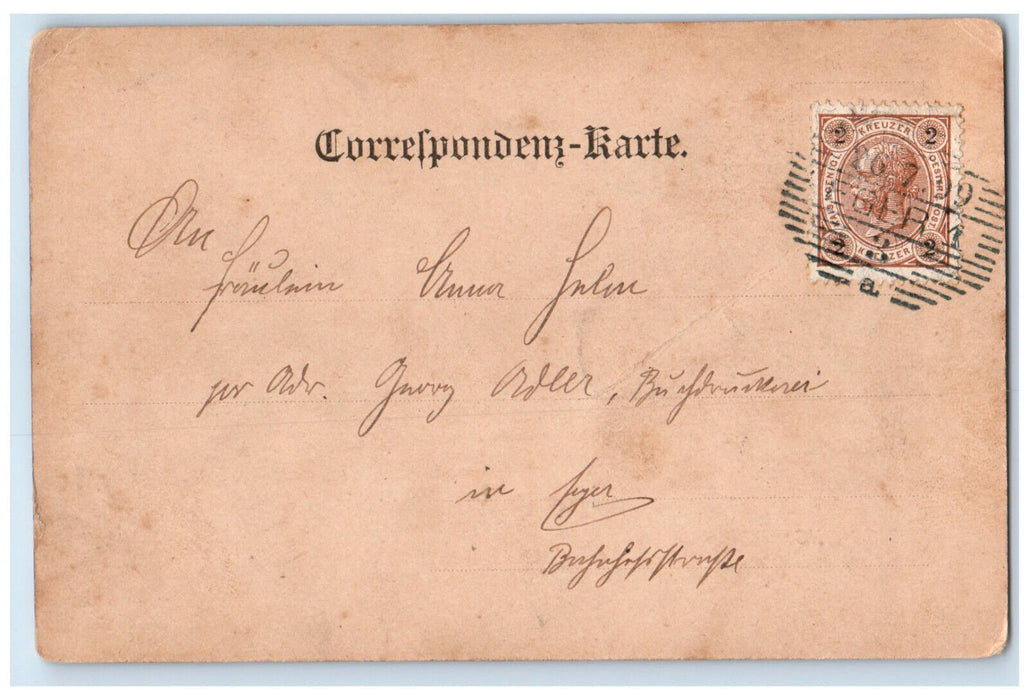 Correspondenz-Karte.
2 KREUZER 2
2 KREUZER 2
An
Fräulein Anna Helm
per Adr. Georg Adler, Buchdruckerei
in Eger
Bahnhofstraße
a